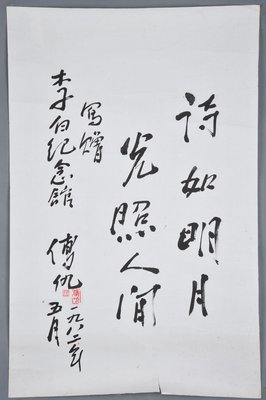 詩如明月
光照人间
寫贈
李白纪念館
傅仇
一九八二年
五月